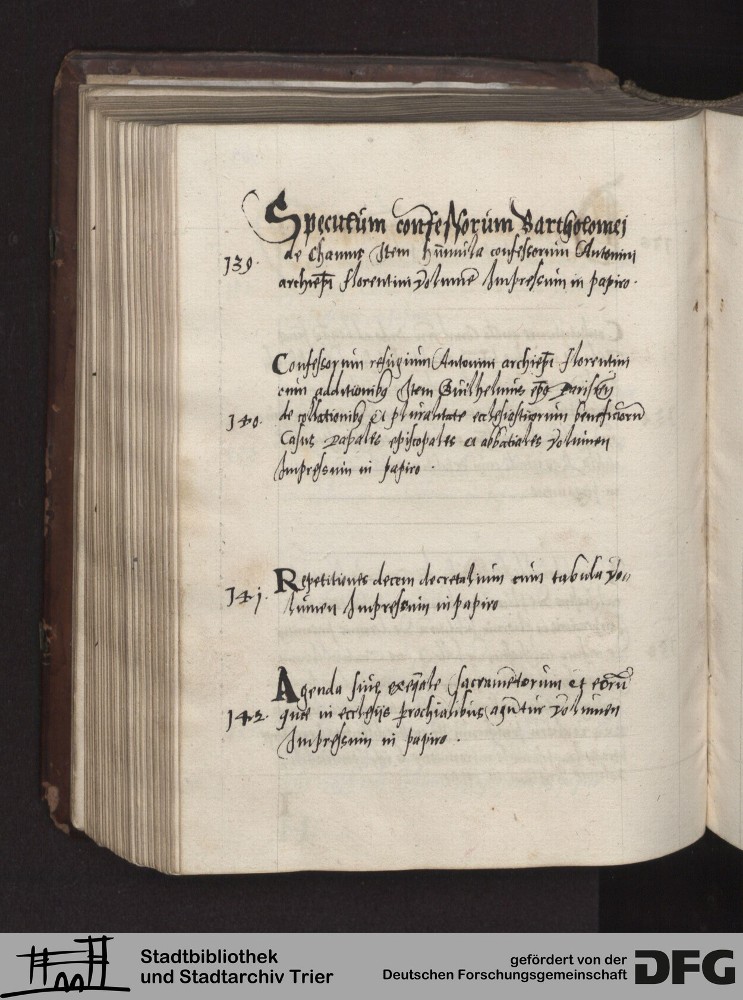 Speculum confessorum Bartholomei
139. de Chaimis Item summula confessorum Antonini
archiepi Florentini Volumē Impressum in papiro.
Confessorum refugium Antonini archiepi Florentini
cum additionibus Item Guilhelmus epūs Parisien
140. de collationibus et pluralitate ecclesiasticorum beneficiorū
Casus Papales episcopales et abbatiales Volumen
Impressum in papiro.
Repetitiones decem decretalium cum tabula Vo-
141. lumen Impressum in papiro
Agenda sive exeqūale sacramētorum et eorū
142. que in ecclesijs prochialibus agūtur Volumen
Impressum in papiro.
Stadtbibliothek
und Stadtarchiv Trier
gefördert von der
Deutschen Forschungsgemeinschaft
DFG